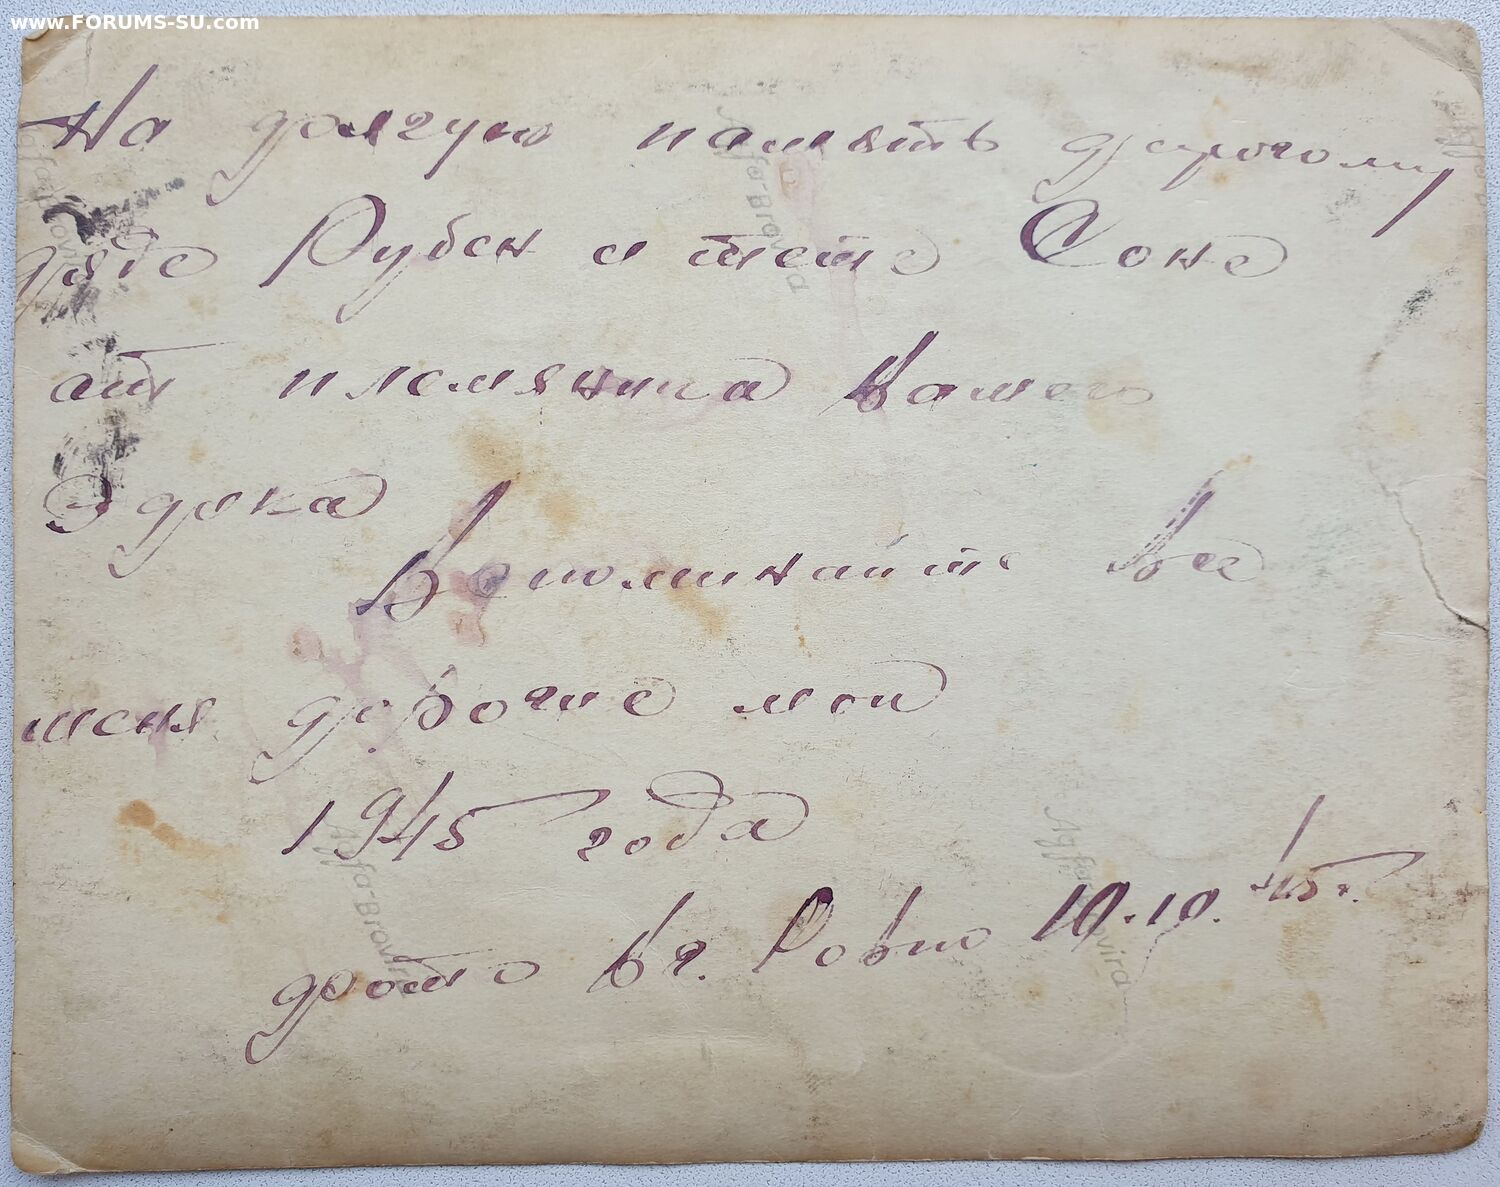 www.FORUMS-SU.com
На долгую память дорогому
дяде Рубен и тете Соне
от племяника Вашего
Эдика
Вспоминайте все
меня дорогие мои
1945 года
фото в г. Ровно 10.10.45г.
Agfa Brovira
Agfa Brovira
Agfa Brovira
Agfa Brovira